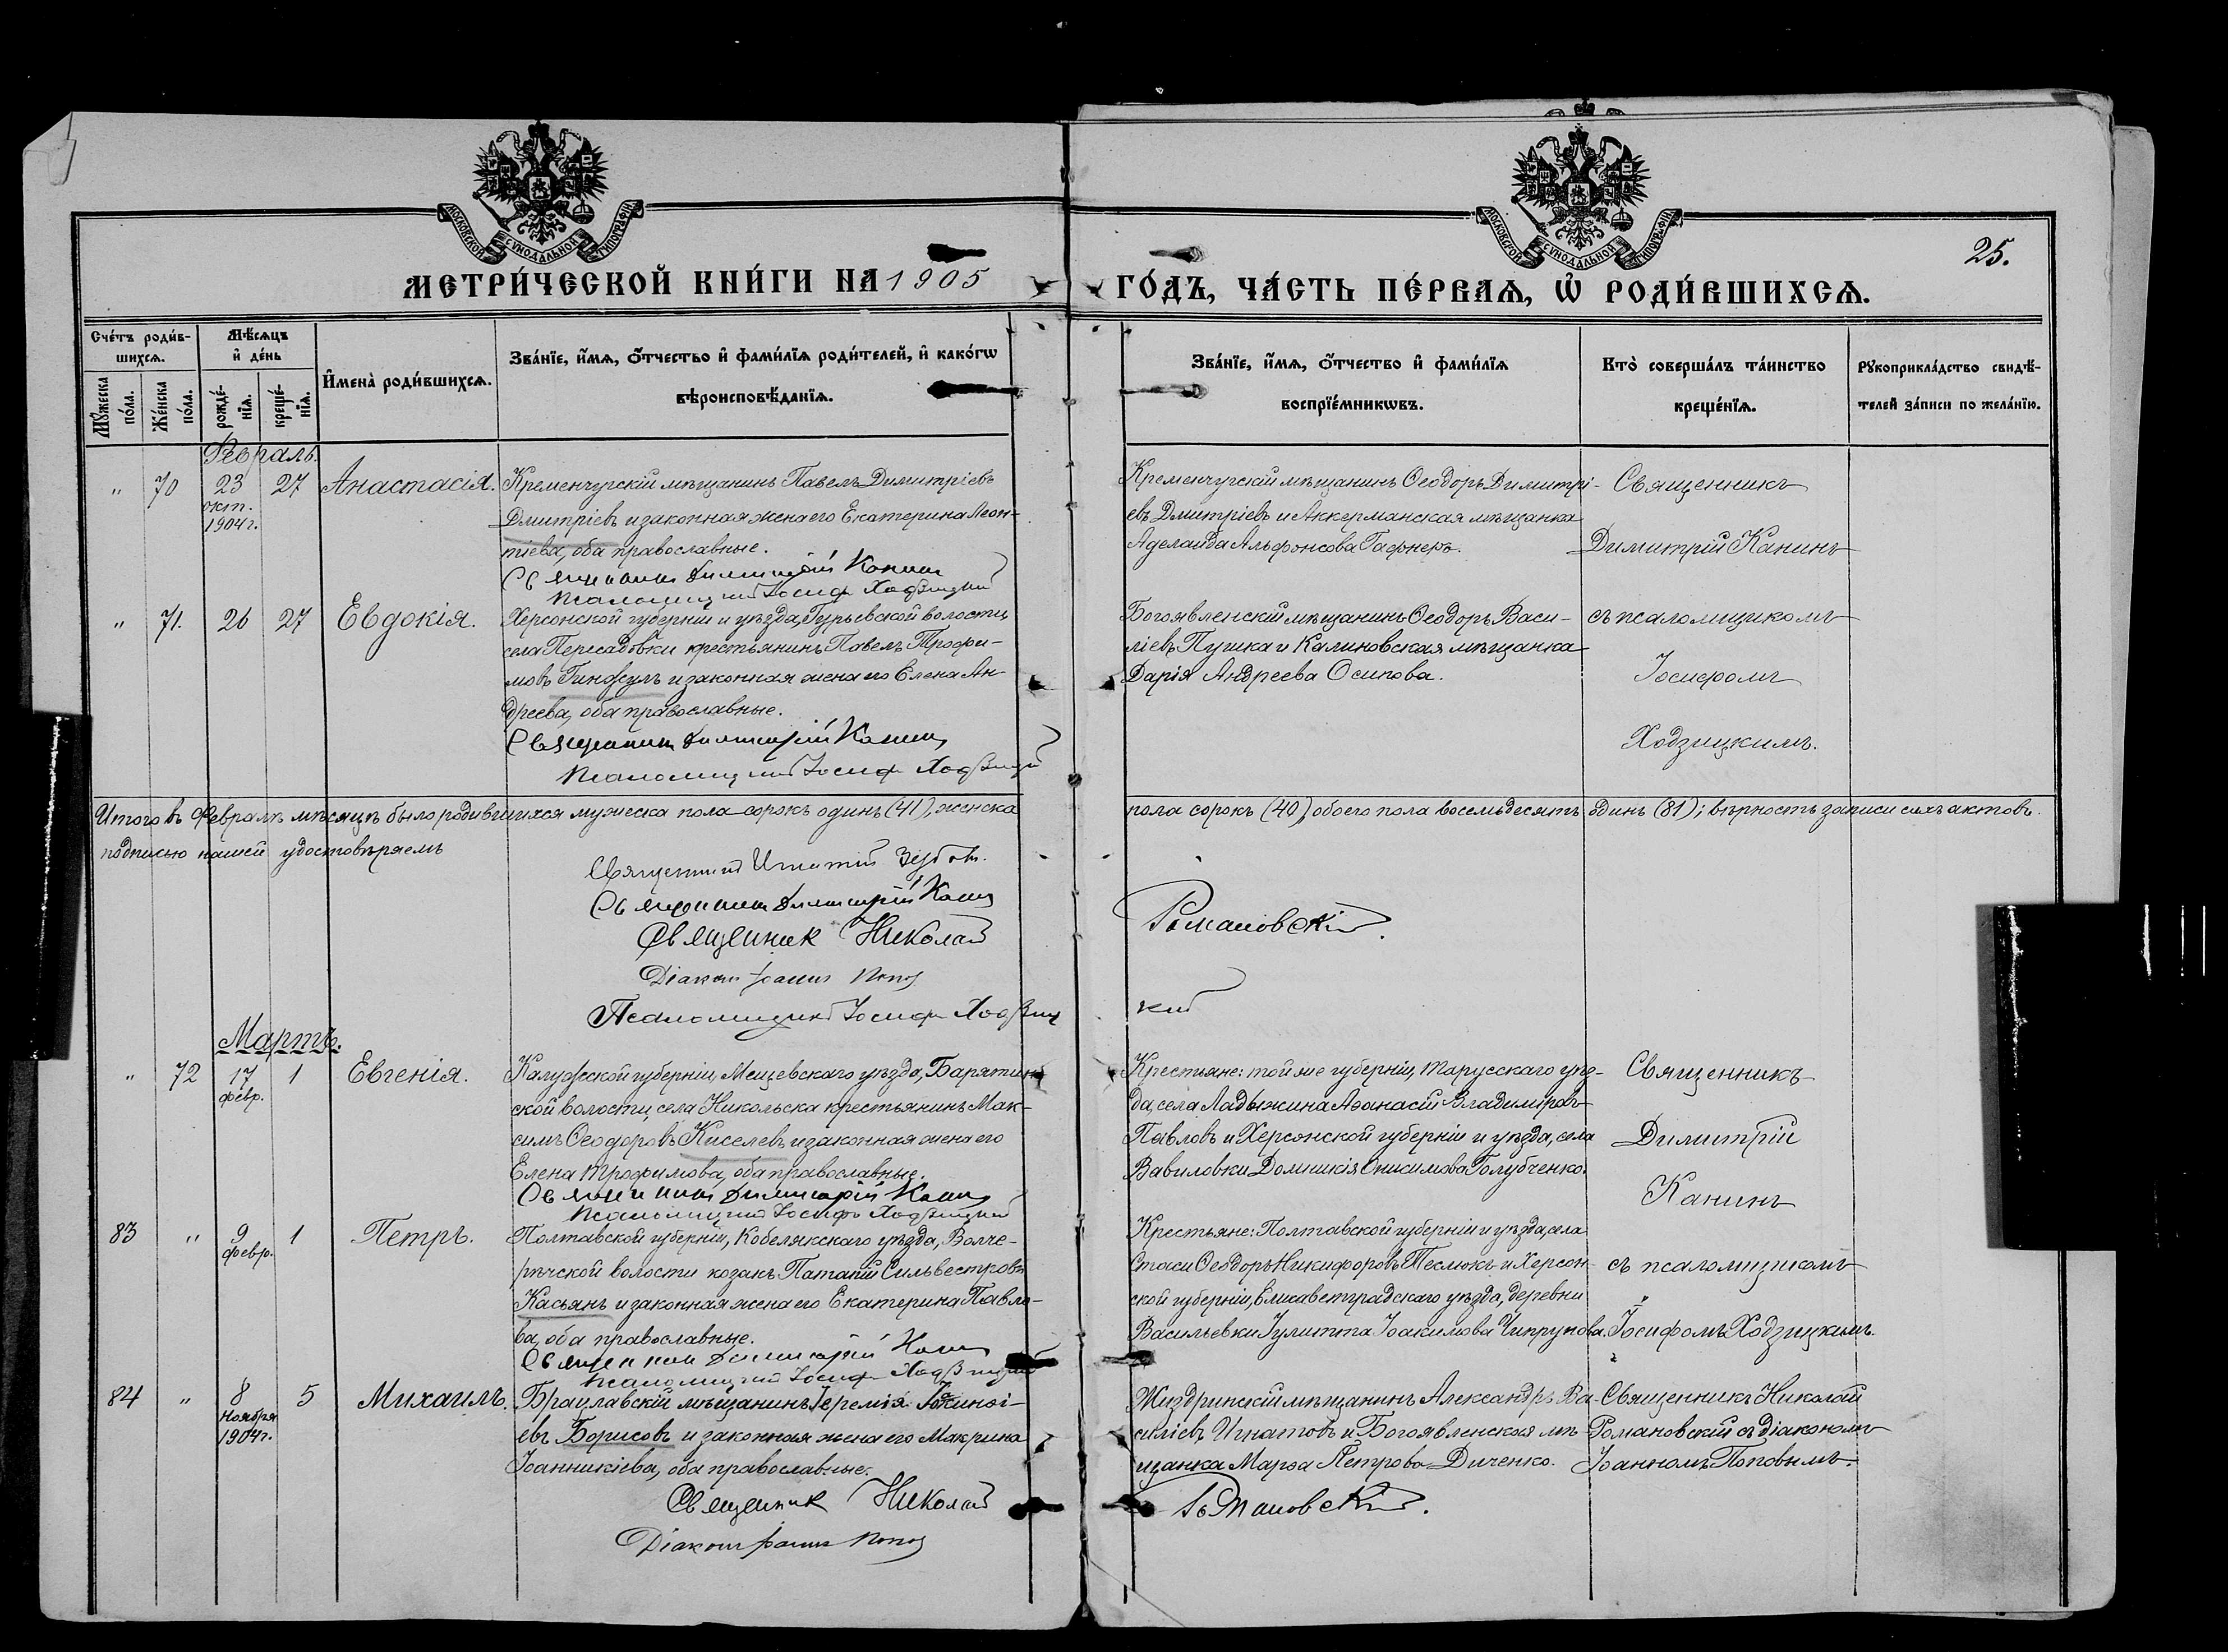 МОСКОВСКОЙ СѴНОДАЛЬНОЙ ТИПОГРАФІИ
МОСКОВСКОЙ СѴНОДАЛЬНОЙ ТИПОГРАФІИ
25.
МЕТРИ́ЧЕСКОЙ КНИ́ГИ НА 1905
ГО́ДЪ, ЧА́СТЬ ПЕ́РВАѦ, Ѡ҆ РОДИ́ВШИХСѦ.
Сче́тъ роди́в-
шихсѧ.
Мꙋ́жеска по́ла.
Же́нска по́ла.
Мѣ́сѧцъ
и҆ де́нь
рожде́-нїѧ.
креще́-нїѧ.
И҆мена̀ роди́вшихсѧ.
Зва́нїе, и҆́мѧ, ѻ҆́тчество и҆ фами́лїѧ роди́телей, и҆ како́гѡ
вѣроисповѣ́данїѧ.
Зва́нїе, и҆́мѧ, ѻ҆́тчество и҆ фами́лїѧ
воспрїе́мникѡвъ.
Кто̀ соверша́лъ та́инство
креще́нїѧ.
Рꙋкоприкла́дство свидѣ́-
телей за́писи по жела́нїю.
Февраль.
" 70 23 окт. 1904 г. 27 Анастасія.
Кременчугскій мѣщанинъ Павелъ Димитріевъ
Дмитріевъ и законная жена его Екатерина Леон-
тіева, оба православные.
Священникъ Димитрій Канинъ
Псаломщикъ Іосифъ Ходзицкій
Кременчугскій мѣщанинъ Ѳеодоръ Димитрі-
евъ Дмитріевъ и Аккерманская мѣщанка
Аделаида Альфонсова Гафнеръ.
Священникъ
Димитрій Канинъ
" 71. 26 27 Евдокія.
Херсонской губерніи и уѣзда, Гурьевской волости,
села Пересадовки крестьянинъ Павелъ Трофи-
мовъ Гинжулъ и законная жена его Елена Ан-
дреева, оба православные.
Священникъ Димитрій Канинъ
Псаломщикъ Іосифъ Ходзицкій
Богоявленскій мѣщанинъ Ѳеодоръ Васи-
ліевъ Пушка и Калиновская мѣщанка
Дарія Андреева Осипова.
съ псаломщикомъ
Іосифомъ
Ходзицкимъ.
Итого въ Февралѣ мѣсяцѣ было родившихся мужеска пола сорокъ одинъ (41), женска
пола сорокъ (40), обоего пола восемьдесятъ одинъ (81); вѣрность записи сихъ актовъ
подписью нашей удостовѣряемъ
Священникъ Игнатій
Священникъ Димитрій Канинъ
Священник Николай Романовскій.
Діаконъ Іоаннъ Поповъ
Псаломщикъ Іосифъ Ходзицкій
Мартъ.
" 72 17 февр. 1 Евгенія.
Калужской губерніи, Мещевскаго уѣзда, Барятин-
ской волости, села Никольска крестьянинъ Мак-
симъ Ѳеодоровъ Киселевъ и законная жена его
Елена Трофимова, оба православные.
Священникъ Димитрій Канинъ
Псаломщикъ Іосифъ Ходзицкій
Крестьяне: той же губерніи, Тарусскаго уѣз-
да, села Ладыжина Аѳанасій Владиміровъ
Павловъ и Херсонской губерніи и уѣзда, села
Вавиловки Домникія Онисимова Голубченко.
Священникъ
Димитрій
Канинъ
83 " 9 февр. 1 Петръ.
Полтавской губерніи, Кобелякскаго уѣзда, Волче-
рѣчской волости козакъ Патапій Сильвестровъ
Касьянъ и законная жена его Екатерина Павло-
ва, оба православные.
Священникъ Димитрій Канинъ
Псаломщикъ Іосифъ Ходзицкій
Крестьяне: Полтавской губерніи и уѣзда, села
Стаси Ѳеодоръ Никифоровъ Теслюкъ и Херсон-
ской губерніи, Елисаветградскаго уѣзда, деревни
Васильевки Іулитта Іоакимова Чипрунова.
съ псаломщикомъ
Іосифомъ Ходзицкимъ.
84 " 8 Ноября 1904 г. 5 Михаилъ.
Брацлавскій мѣщанинъ Іеремія
евъ Борисовъ и законная жена его Макрина
Іоанникіева, оба православные.
Священник Николай Романовскій.
Діаконъ Іоаннъ Поповъ
Жиздринскій мѣщанинъ Александръ Ва-
силіевъ Игнатовъ и Богоявленская мѣ-
щанка Марѳа Петрова Диченко.
Священникъ Николай
Романовскій съ діакономъ
Іоанномъ Поповымъ.